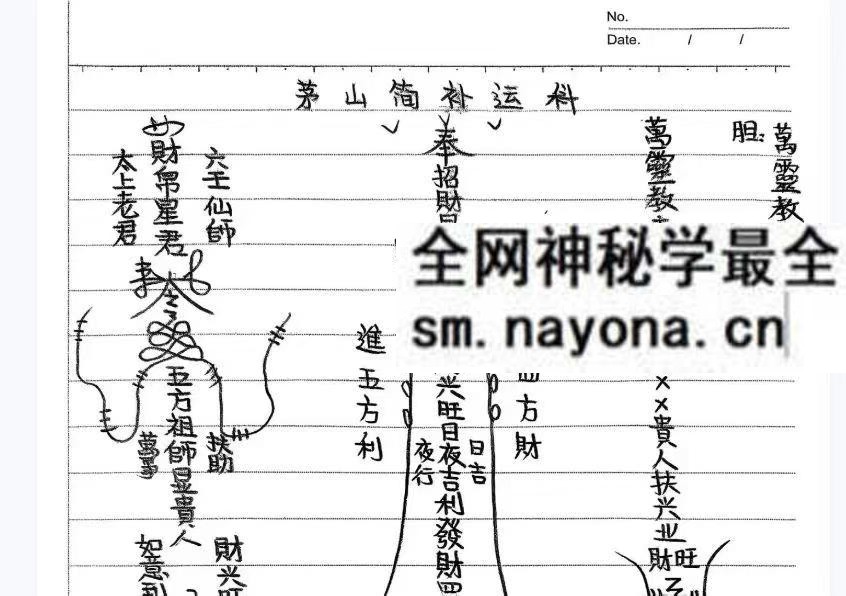 No.
Date. / /
茅山简补运科
胆:萬靈教
萬靈教
xx貴人扶兴业
財旺
奉招財
兴旺日夜吉利發財四
日吉
夜行
方財
進五方利
六壬仙師
財帛星君
太上老君
五方祖師显貴人
扶助
萬事
財兴旺
如意
全网神秘学最全
sm.nayona.cn